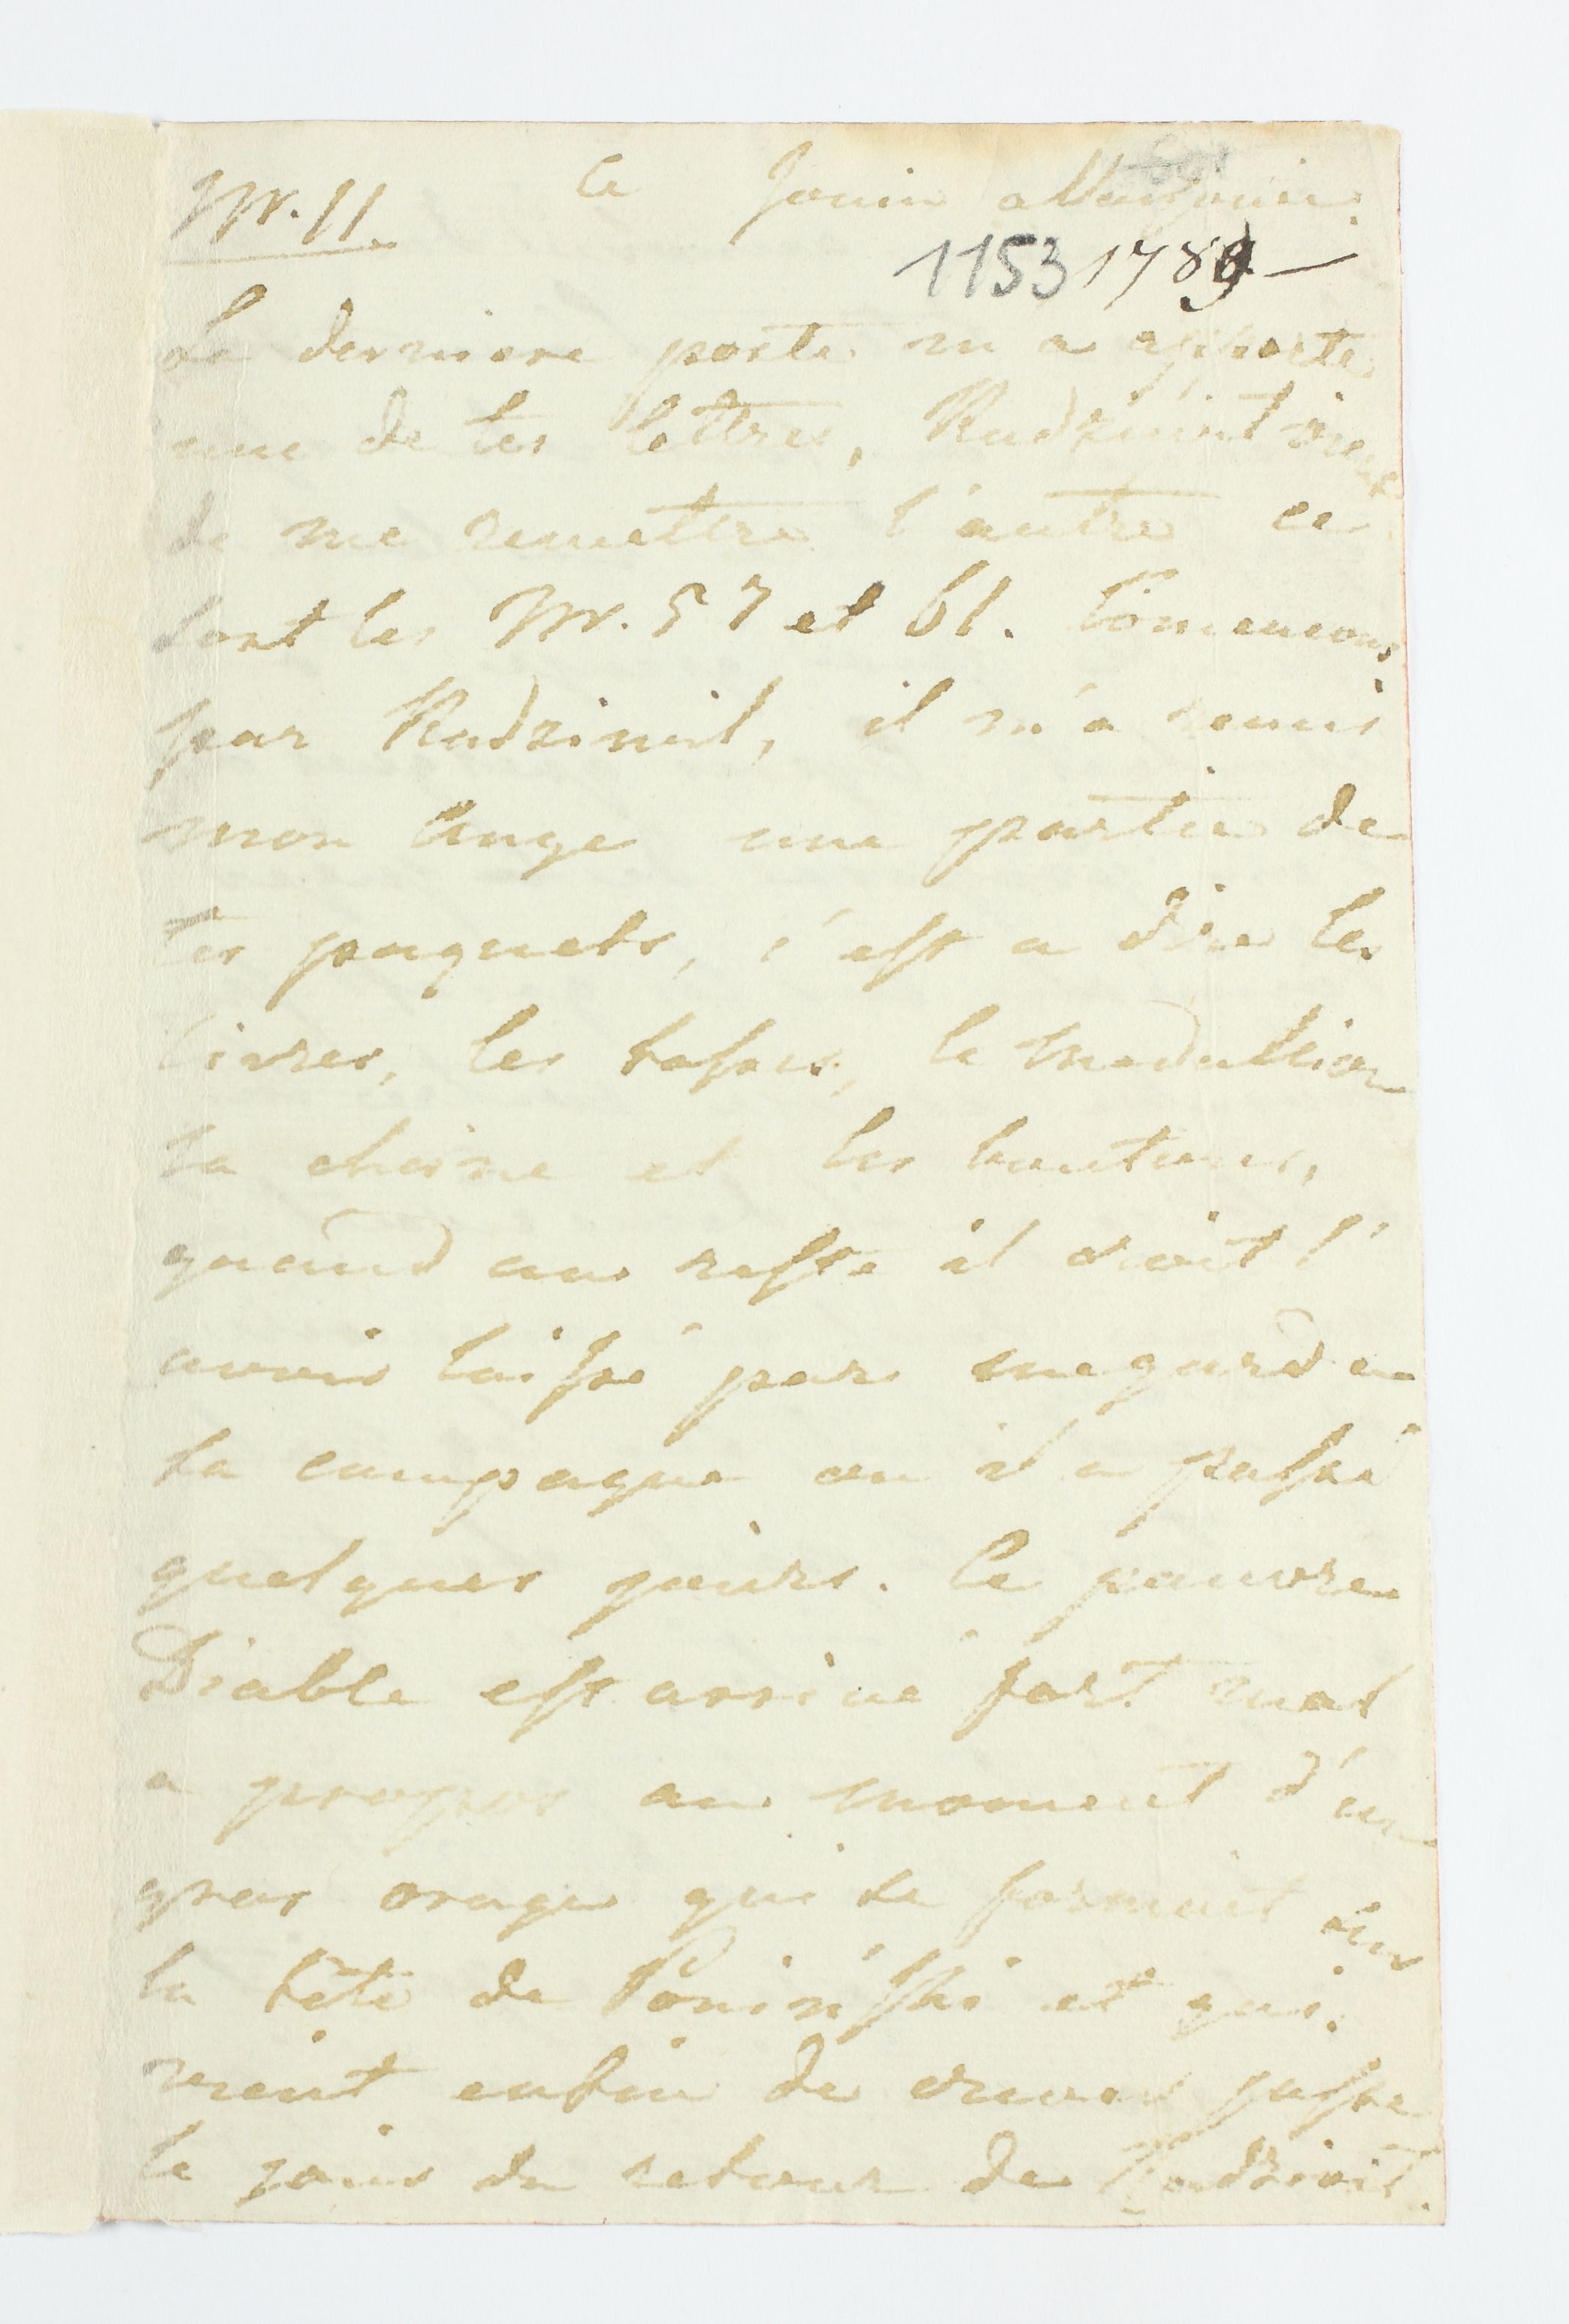 Nr. 11. ce Jouin a Varsovie.
1153 1789 —
La derniere poste m a apporte
une de tes lettres, Radziwil vient
de me remettre l'autre ce
sont les Nr. 57 et 61. Comencons
par Radziwil, il m'a remis
mon Ange une partie de
tes paquets, c'est a dire les
livres, les tasses, le medallion
la chaine et les boutons,
quand au reste il doit l'
avoir laissé par megard a
la campagne ou il a passé
quelques jours. Ce pauvre
Diable est arrivé fort mal
a propos au moment d'un
gros orage qui se formait sur
la tête de Poninski et qui
vient enfin de crever juste
le jour du retour de Radziwil.